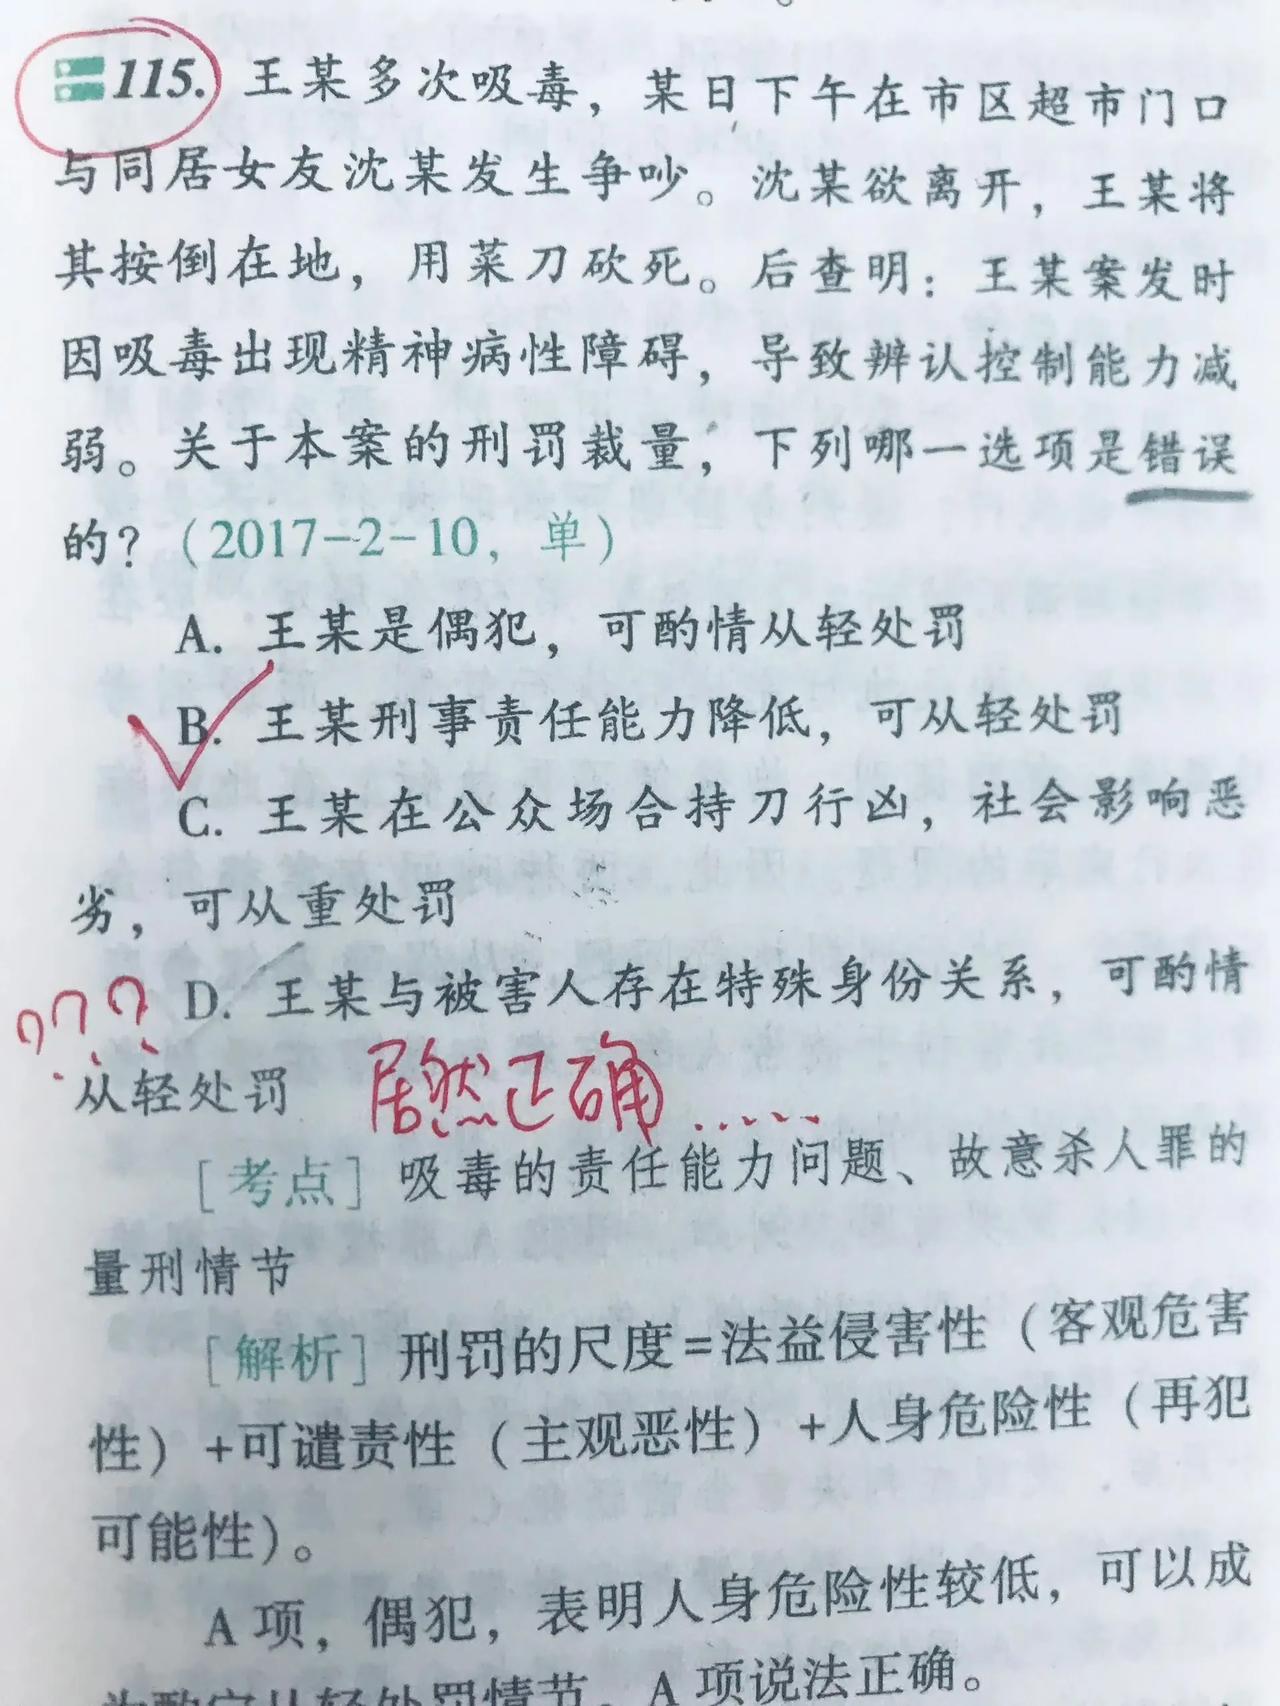 115. 王某多次吸毒，某日下午在市区超市门口
与同居女友沈某发生争吵。沈某欲离开，王某将
其按倒在地，用菜刀砍死。后查明：王某案发时
因吸毒出现精神病性障碍，导致辨认控制能力减
弱。关于本案的刑罚裁量，下列哪一选项是错误
的？（2017-2-10，单）
A. 王某是偶犯，可酌情从轻处罚
B. 王某刑事责任能力降低，可从轻处罚
C. 王某在公众场合持刀行凶，社会影响恶
劣，可从重处罚
??? D. 王某与被害人存在特殊身份关系，可酌情
从轻处罚 居然正确……
［考点］吸毒的责任能力问题、故意杀人罪的
量刑情节
［解析］刑罚的尺度=法益侵害性（客观危害
性）+可谴责性（主观恶性）+人身危险性（再犯
可能性）。
A 项，偶犯，表明人身危险性较低，可以成
为酌定从轻处罚情节。A 项说法正确。